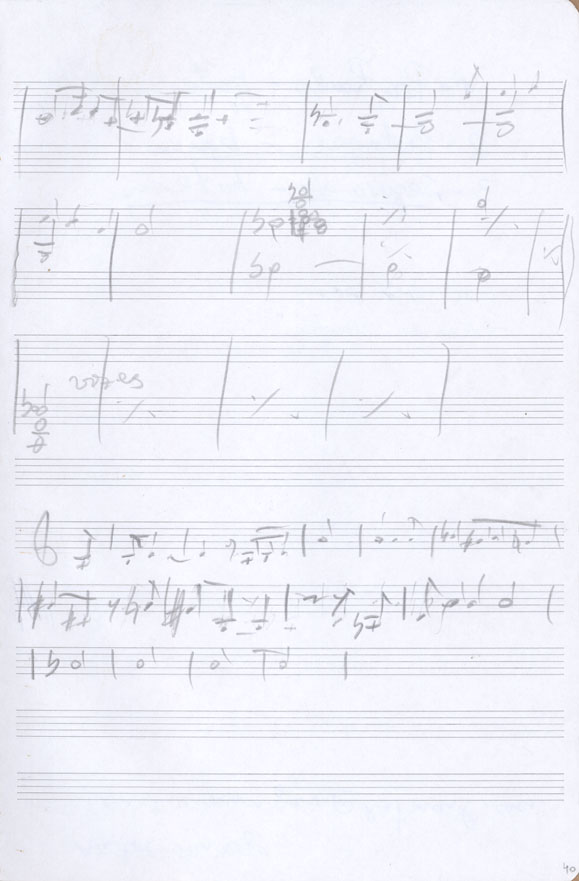 vozes
40